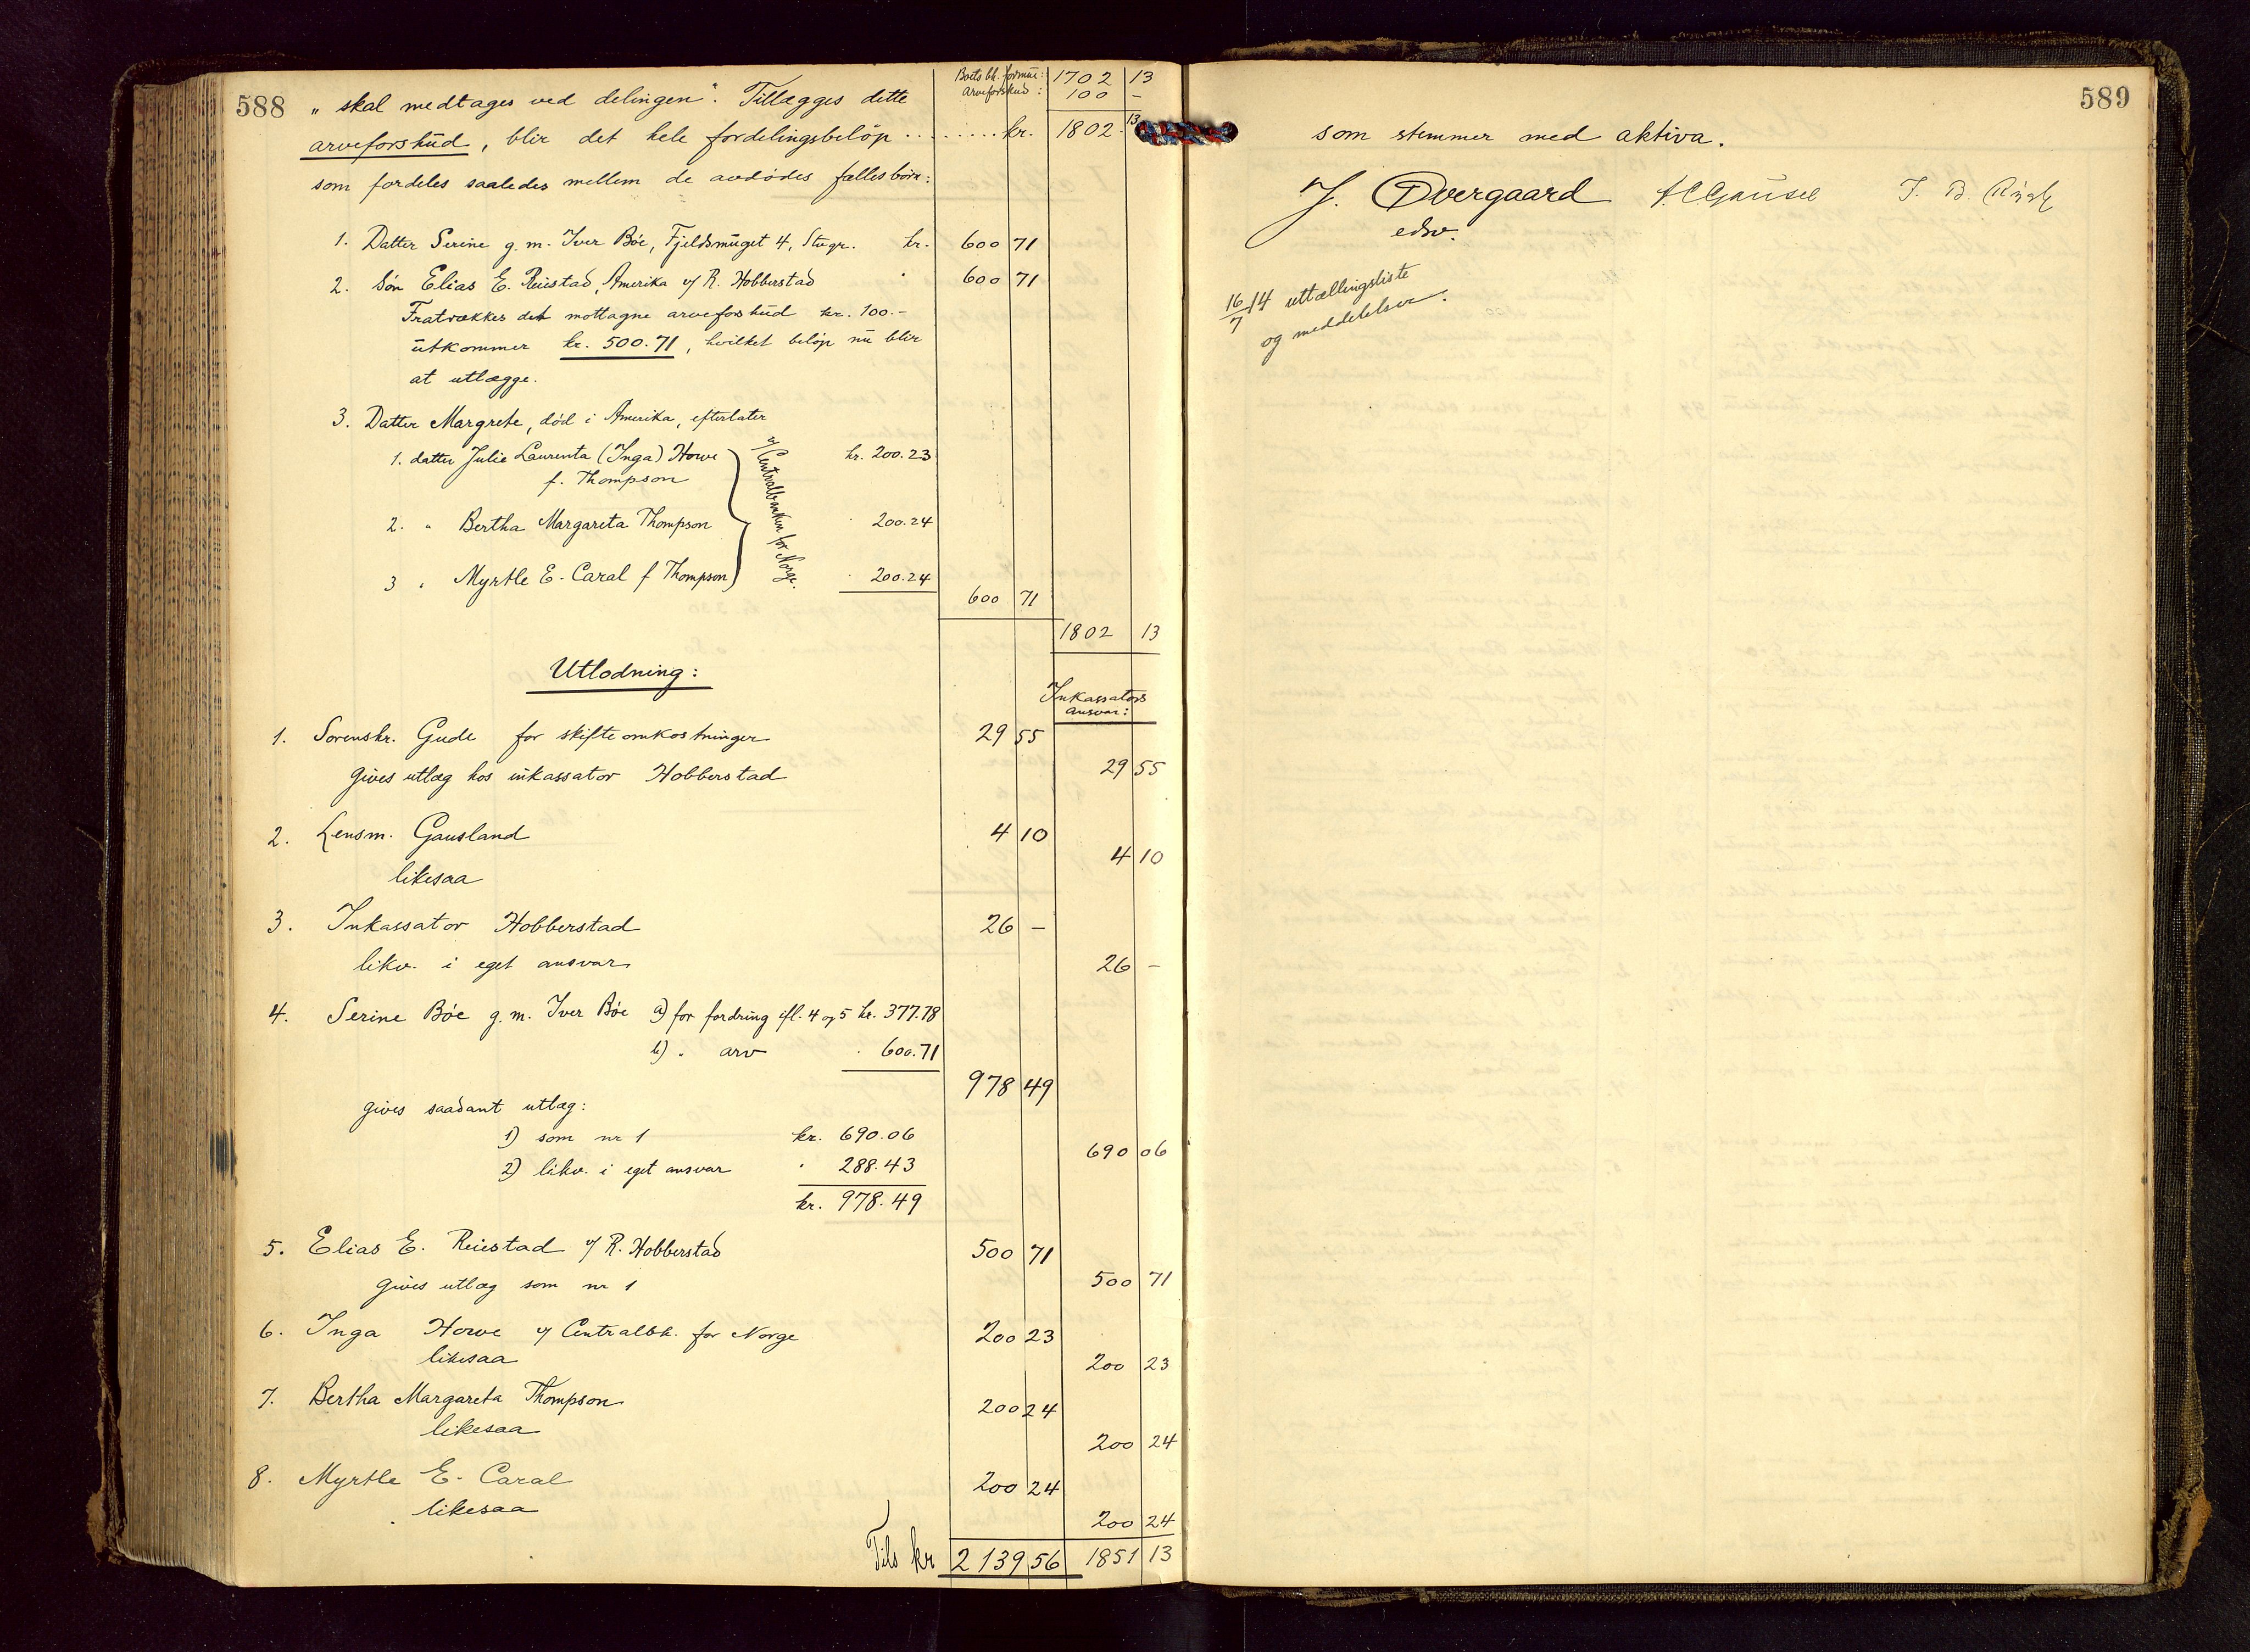 588
Boets bh. formue: 1702 13
Arveforskud: 100 –
„ skal medtages ved delingen“. Tillægges dette
arveforskud, blir det hele fordelingsbeløp ......... kr. 1802. 13
som fordeles saaledes mellem de avdødes fællesbørn:
1. Datter Serine g. m. Iver Bøe, Fjeldsmuget 4, Stvgr. kr. 600 71
2. Søn Elias E. Reiestad, Amerika v/ R. Hobberstad " 600 71
Fratrækkes det mottagne arveforskud kr. 100.-
utkommer kr. 500.71, hvilket beløp nu blir
at utlægge.
3. Datter Margrete, død i Amerika, efterlater
1. datter Julie Laurenta (Inga) Howe kr. 200.23
f. Thompson
2. " Bertha Margareta Thompson " 200.24
3 " Myrtle E. Caral f Thompson " 200.24
v/ Centralbanken for Norge.
600 71
1802 13
Utlodning:
Inkassators
ansvar:
1. Sorenskr. Gude for skifteomkostninger 29 55
gives utlæg hos inkassator Hobberstad 29 55
2. Lensm. Gausland 4 10
likesaa 4 10
3. Inkassator Hobberstad 26 –
likv. i eget ansvar 26 –
4. Serine Bøe g. m. Iver Bøe a) for fordring ifl. 4 og 5 kr. 377.78
b) " arv " 600.71
978 49
gives saadant utlæg:
1) som nr 1 kr. 690.06 690 06
2) likv. i eget ansvar " 288.43
kr. 978.49
5. Elias E. Reiestad v/ R. Hobberstad 500 71
gives utlæg som nr 1 500 71
6. Inga Howe v/ Centralbk. for Norge 200 23
likesaa 200 23
7. Bertha Margareta Thompson 200 24
likesaa 200 24
8. Myrtle E. Caral 200 24
likesaa 200 24
Tils kr 2139 56 1851 13
589
som stemmer med aktiva.
J. Øvergaard A. C. Gausel T. B.
edsv.
16/7 14 uttællingsliste
og meddelelser.